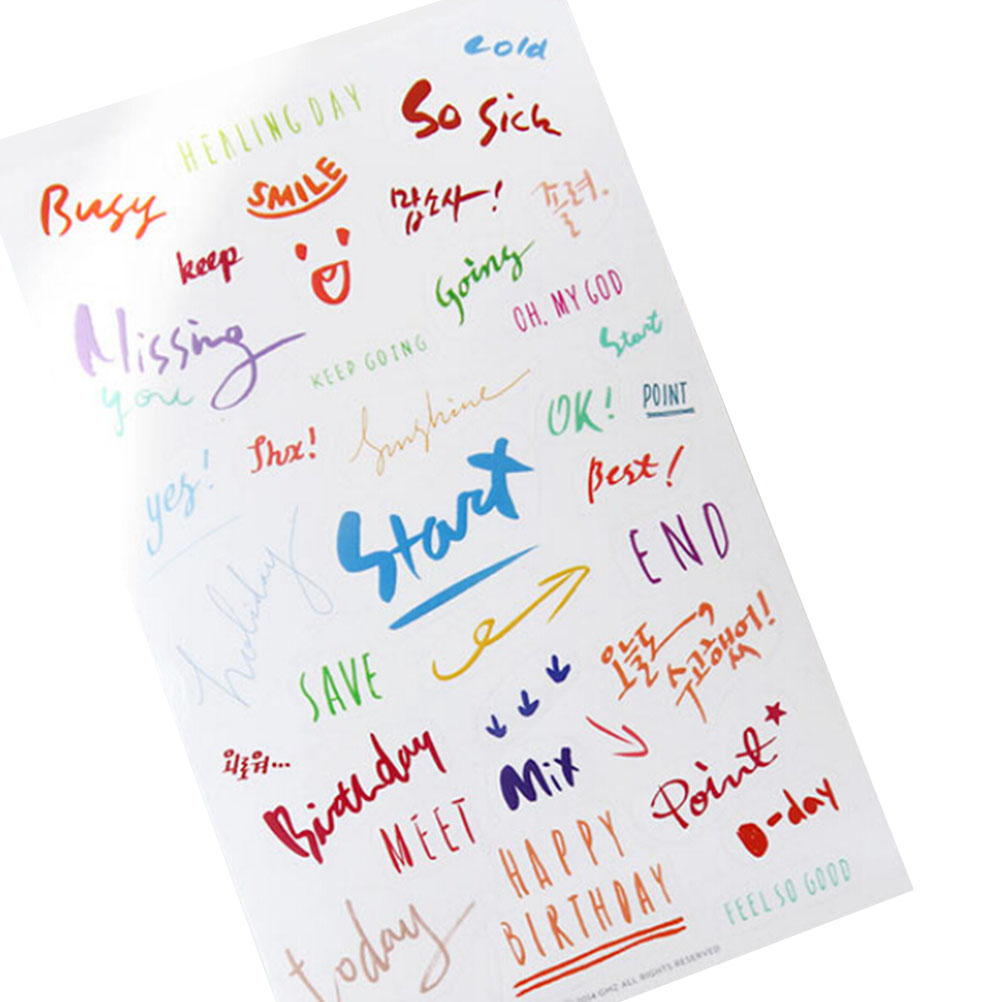 cold
HEALING DAY
So Sick
Busy
SMILE
맙소사!
졸려.
keep
Going
OH, MY GOD
Missing
you
KEEP GOING
Start
Thx!
Sunshine
OK!
POINT
yes!
Start
Best!
END
holiday
SAVE
오늘도
수고했어!
외로워...
Birthday
Mix
Point
MEET
D-day
HAPPY
BIRTHDAY
FEEL SO GOOD
today
2014 GMZ ALL RIGHTS RESERVED